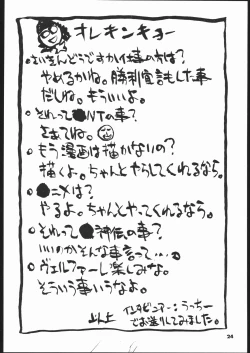 オレキンキョー
○さいきんどうですか仕事の方は?
やめるかね。勝利宣言もした事
だしね。もういいよ。
○それって●NTの事?
さあてね。
○もう漫画は描かないの?
描くよ。ちゃんとやらしてくれるなら。
○●ニメは?
やるよ。ちゃんとやってくれるなら。
○それって●神伝の事?
いいのかそんな事言って…
○ヴェルファーレ楽しみな。
そういう事いうなよ。
以上 インタビュアー:うっちー
でお送りしてみました。
24